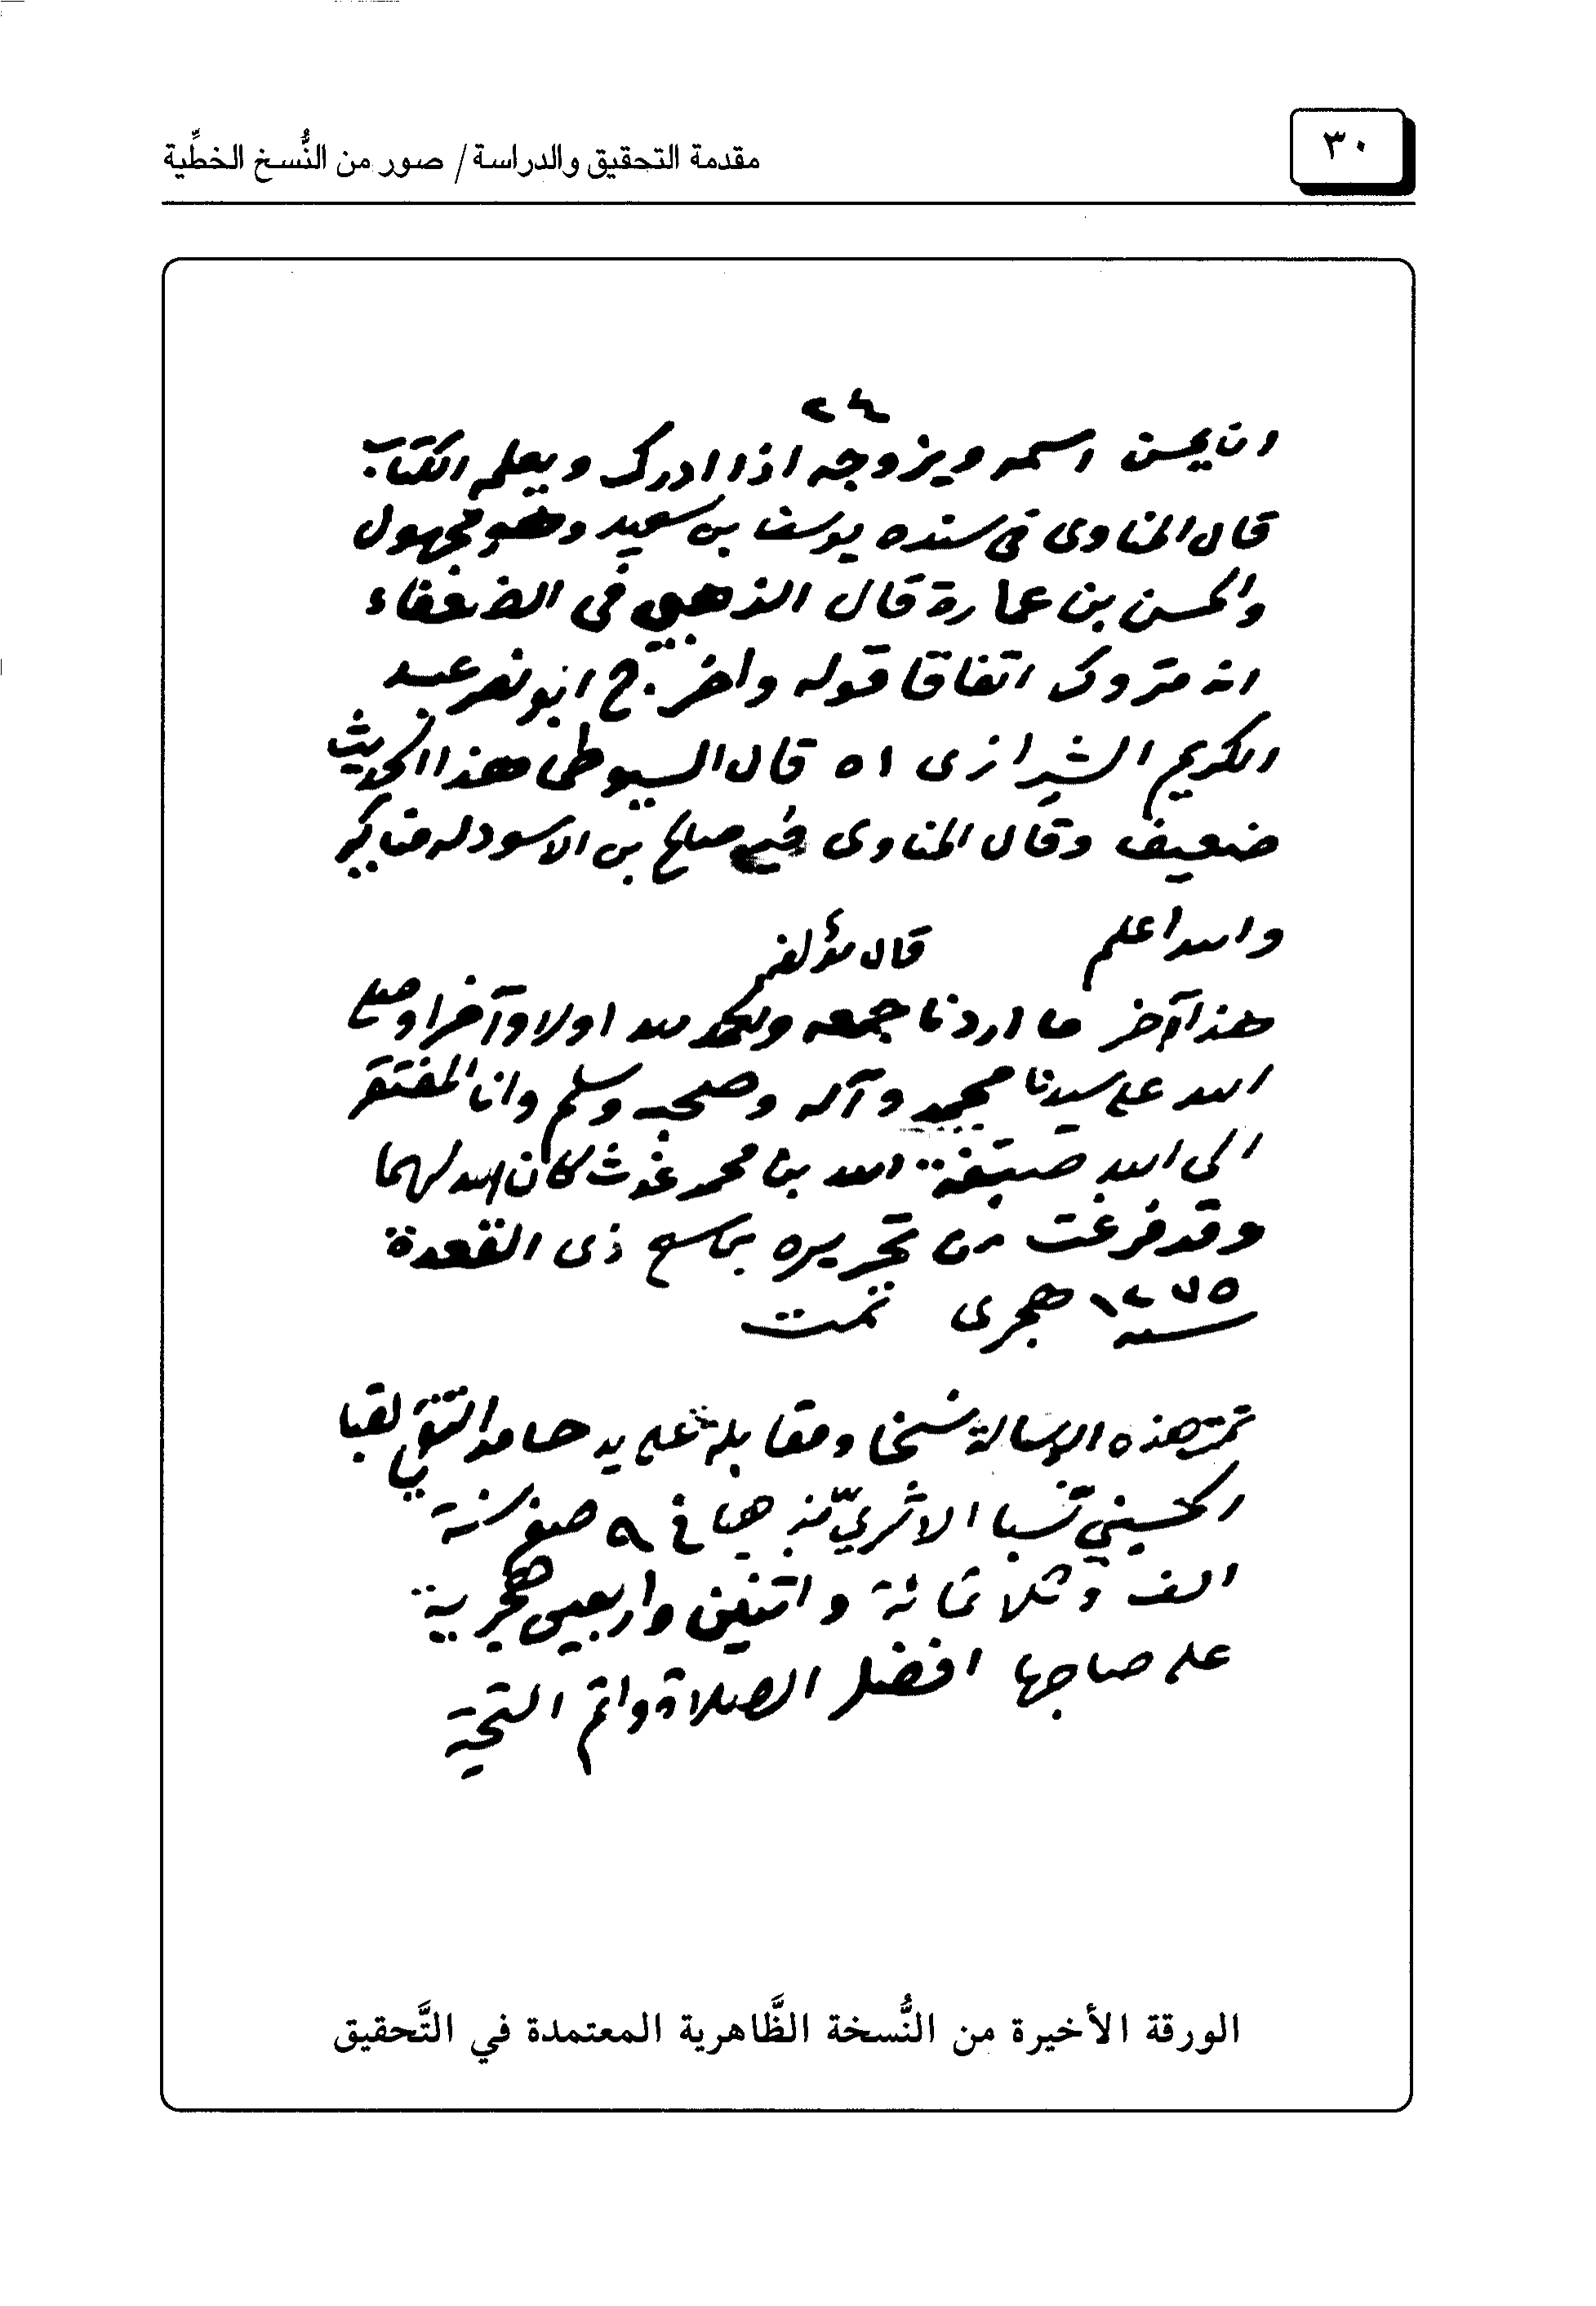 ٣٠
مقدمة التحقيق والدراسة / صور من النُّسخ الخطِّية
٢٤
ان يحسن اسمه ويزوجه اذا ادرك ويعلمه الكتاب
قال المناوى فى سنده يوسف بن سعيد وهو مجهول
والحسن بن عمارة قال الذهبي فى الضعفاء
انه متروك اتفاقا قوله واخرج ابو نصر عبد
الكريم الشيرازى اه قال السيوطى هذا الحديث
ضعيف وقال المناوى فيه صالح بن الاسود له مناكير
والله اعلم قال مؤلفه
هذا آخر ما اردنا جمعه والحمد لله اولا وآخرا وصلى
الله على سيدنا محمد وآله وصحبه وسلم وانا المفتقر
الى الله صبغة الله بن محمد غوث كان الله لهما
وقد فرغت من تحريره بتاسع ذى القعدة
سنة ١٢٧٥ هجرى تمت
تمت هذه الرسالة نسخا ومقابلة على يد حامد التقي لقبا
الحسيني نسبا الاثريّ مذهبا في ٩ صفر سنة
الف وثلاثمائة واثنين واربعين هجرية
على صاحبها افضل الصلاة واتم التحية
الورقة الأخيرة من النُّسخة الظَّاهرية المعتمدة في التَّحقيق